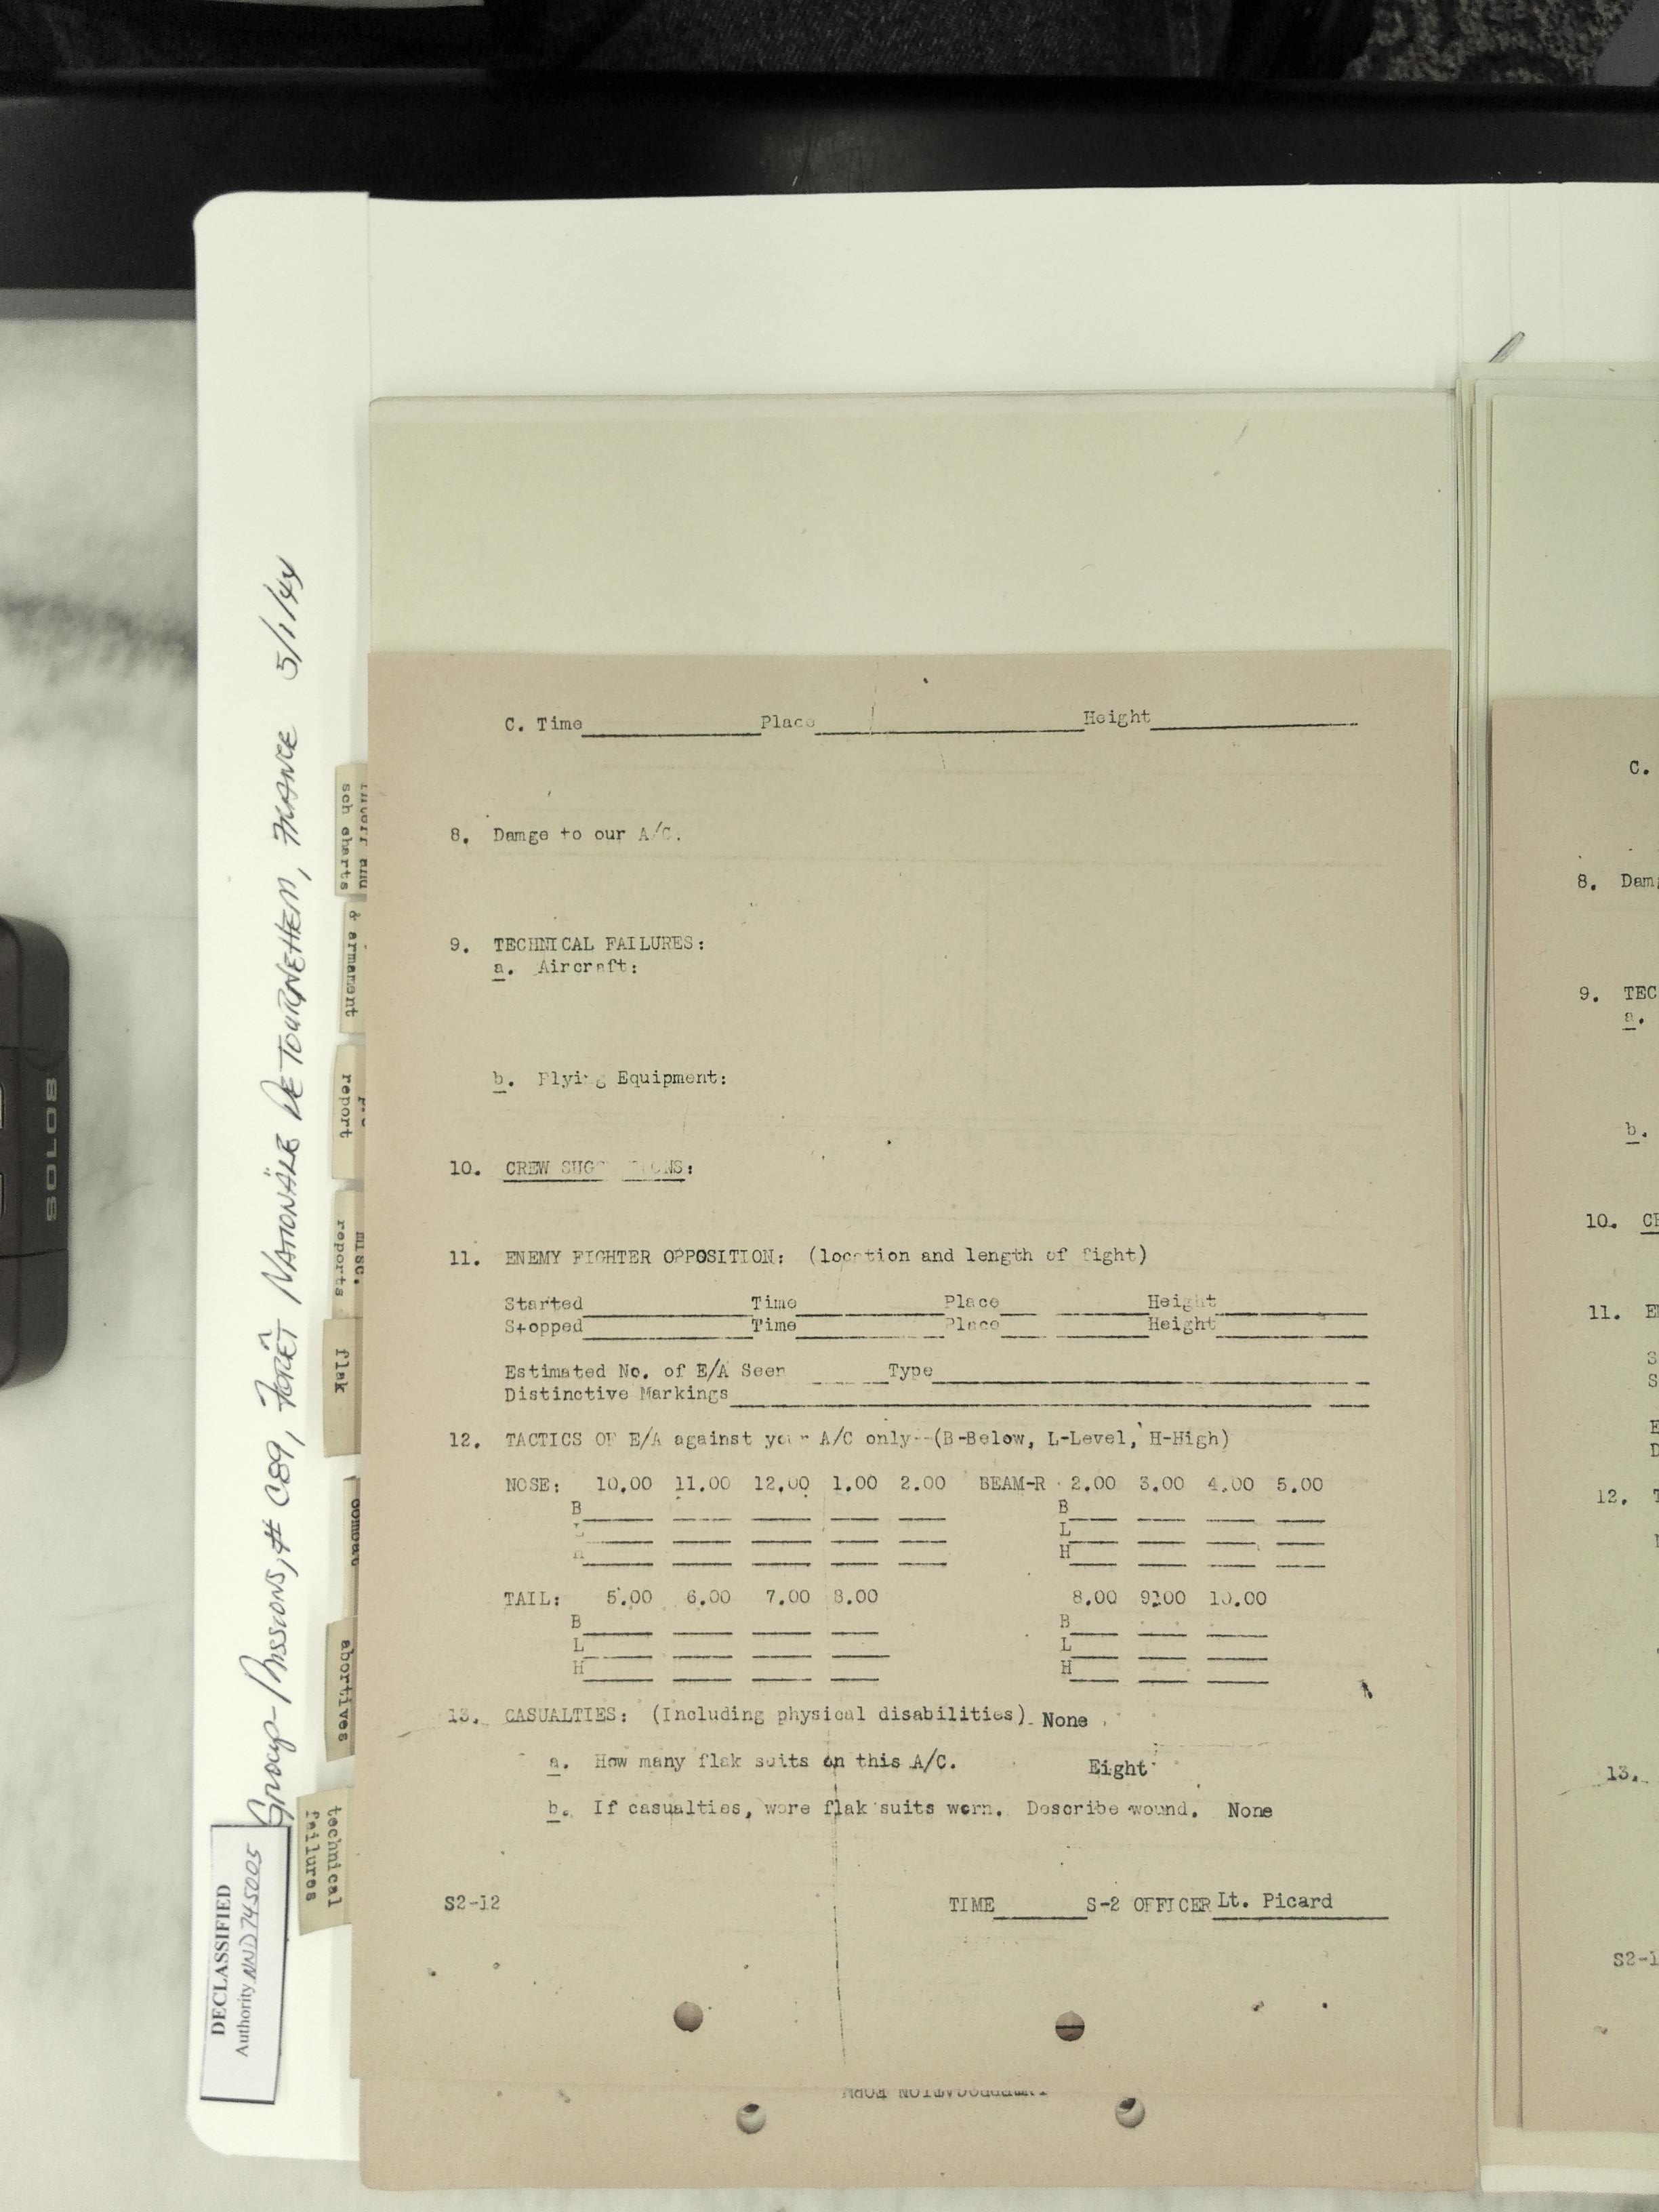 C. Time Place Height
8. Damge to our A/C.
9. TECHNICAL FAILURES:
a. Aircraft:
b. Flying Equipment:
10. CREW
11. ENEMY FIGHTER OPPOSITION: (location and length of fight)
Started Time Place Height
Stopped Time Place Height
Estimated No. of E/A Seen Type
Distinctive Markings
12. TACTICS OF E/A against your A/C only--(B-Below, L-Level, H-High)
NOSE: 10.00 11.00 12.00 1.00 2.00 BEAM-R 2.00 3.00 4.00 5.00
B B
L L
H H
TAIL: 5.00 6.00 7.00 8.00 8.00 9:00 10.00
B B
L L
H H
13. CASUALTIES: (Including physical disabilities) None
a. How many flak suits on this A/C. Eight
b. If casualties, were flak suits worn. Describe wound. None
S2-12 TIME S-2 OFFICER Lt. Picard
INTERROGATION FORM
Group-Missions, # C89, Forêt Nationale De Tournehem, France 5/1/44
DECLASSIFIED
Authority NND 745005
sch charts
& armament
report
misc.
reports
flak
combat
abortives
technical
failures
SOLO8
C.
8. Dam
9. TEC
a.
b.
10.
11.
12.
13.